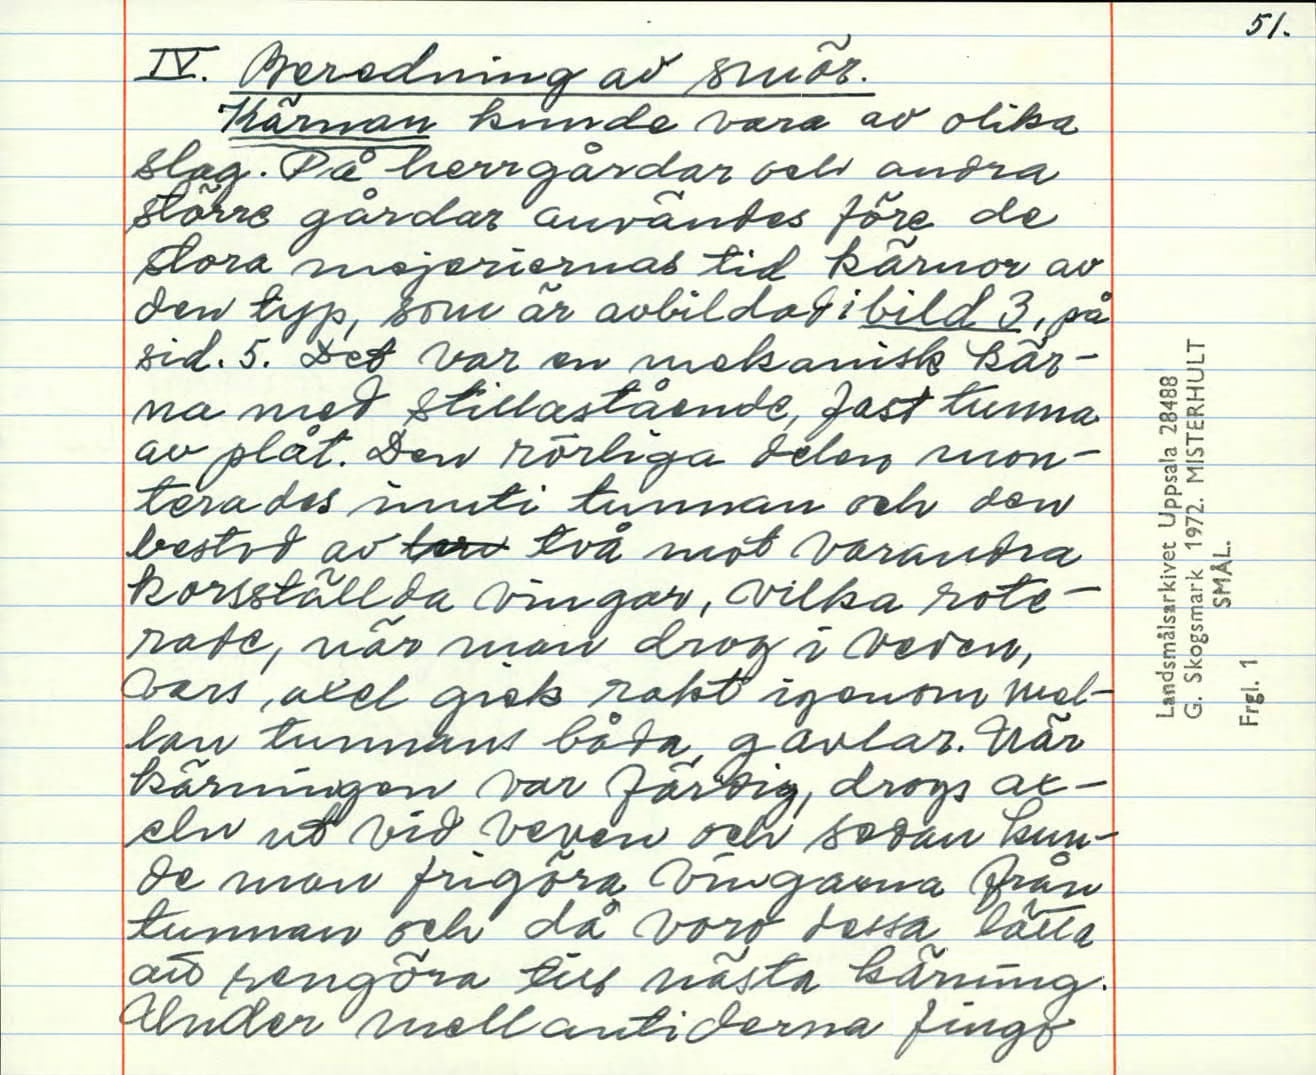 51.
IV. Beredning av smör.
Kärnan kunde vara av olika
slag. På herrgårdar och andra
större gårdar användes före de
stora mejeriernas tid kärnor av
den typ, som är avbildad i bild 3, på
sid. 5. Det var en mekanisk kär-
na med stillastående, fast tunna
av plåt. Den rörliga delen mon-
terades inuti tunnan och den
bestod av två mot varandra
korsställda vingar, vilka rote-
rade, när man drog i veven,
vars axel gick rakt igenom mel-
lan tunnans båda gavlar. När
kärningen var färdig, drogs ax-
eln ut vid veven och sedan kun-
de man frigöra vingarna från
tunnan och då voro dessa lätta
att rengöra till nästa kärning.
Under mellantiderna fingo
Landsmålsarkivet Uppsala 28488
G. Skogsmark 1972. MISTERHULT
SMÅL.
Frgl. 1